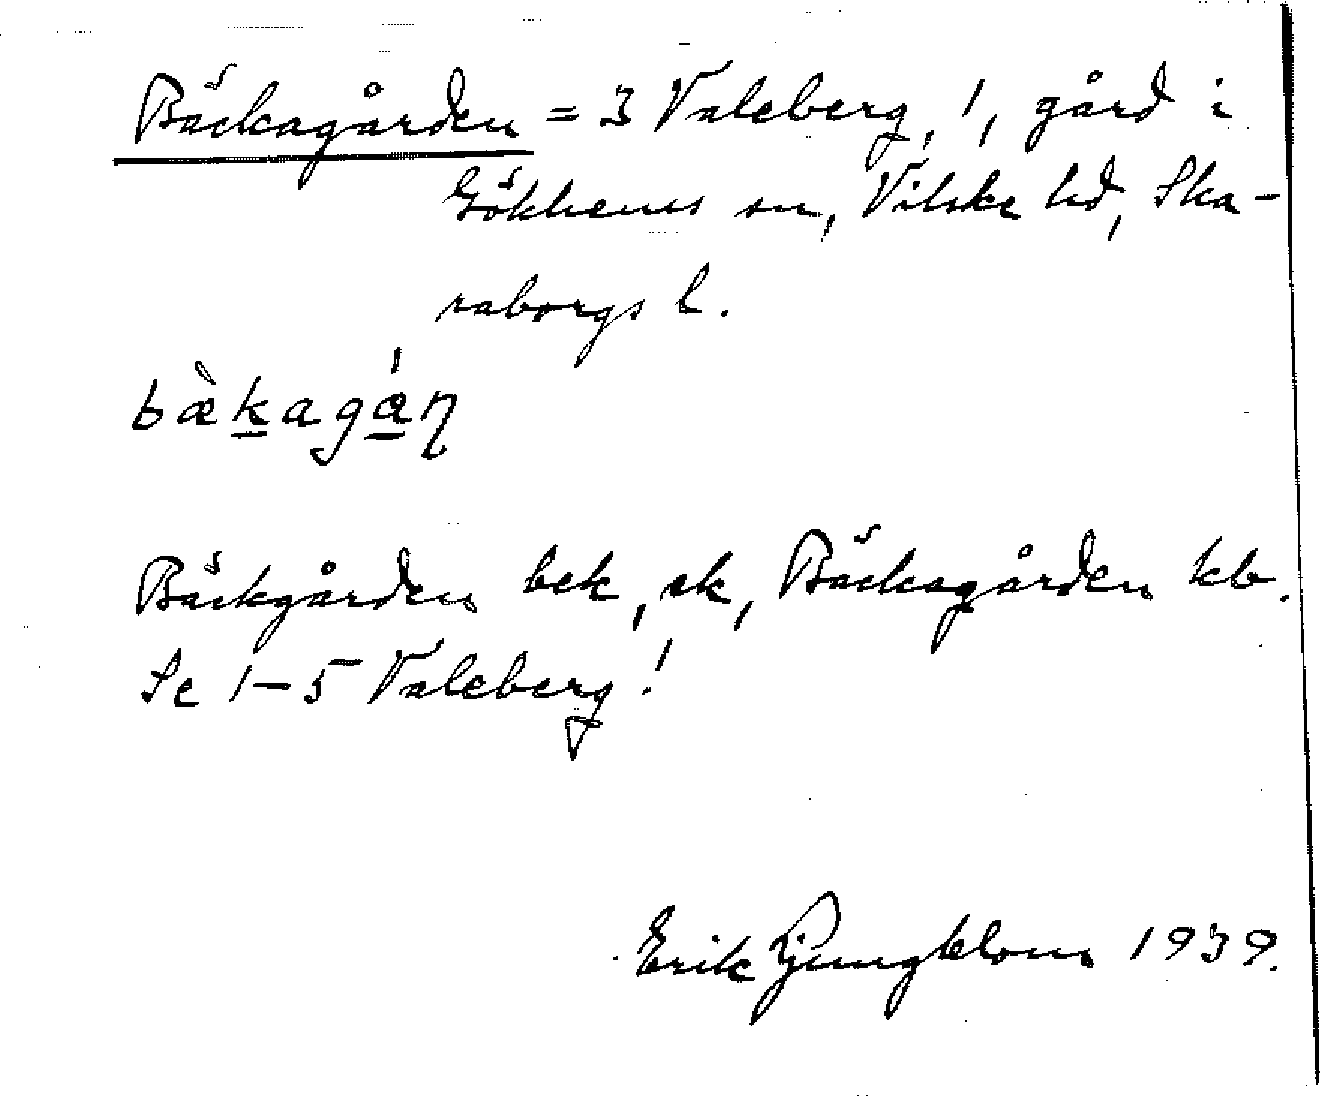 Bäckagården = 3 Valeberg, 1, gård i
Gökhems sn, Vilske hd, Ska-
raborgs l.
bæ̀k̲agá̲ɳ
Bäckgården bek, ek, Bäckagården kb.
Se 1-5 Valeberg!
Erik Ljungblom 1939.